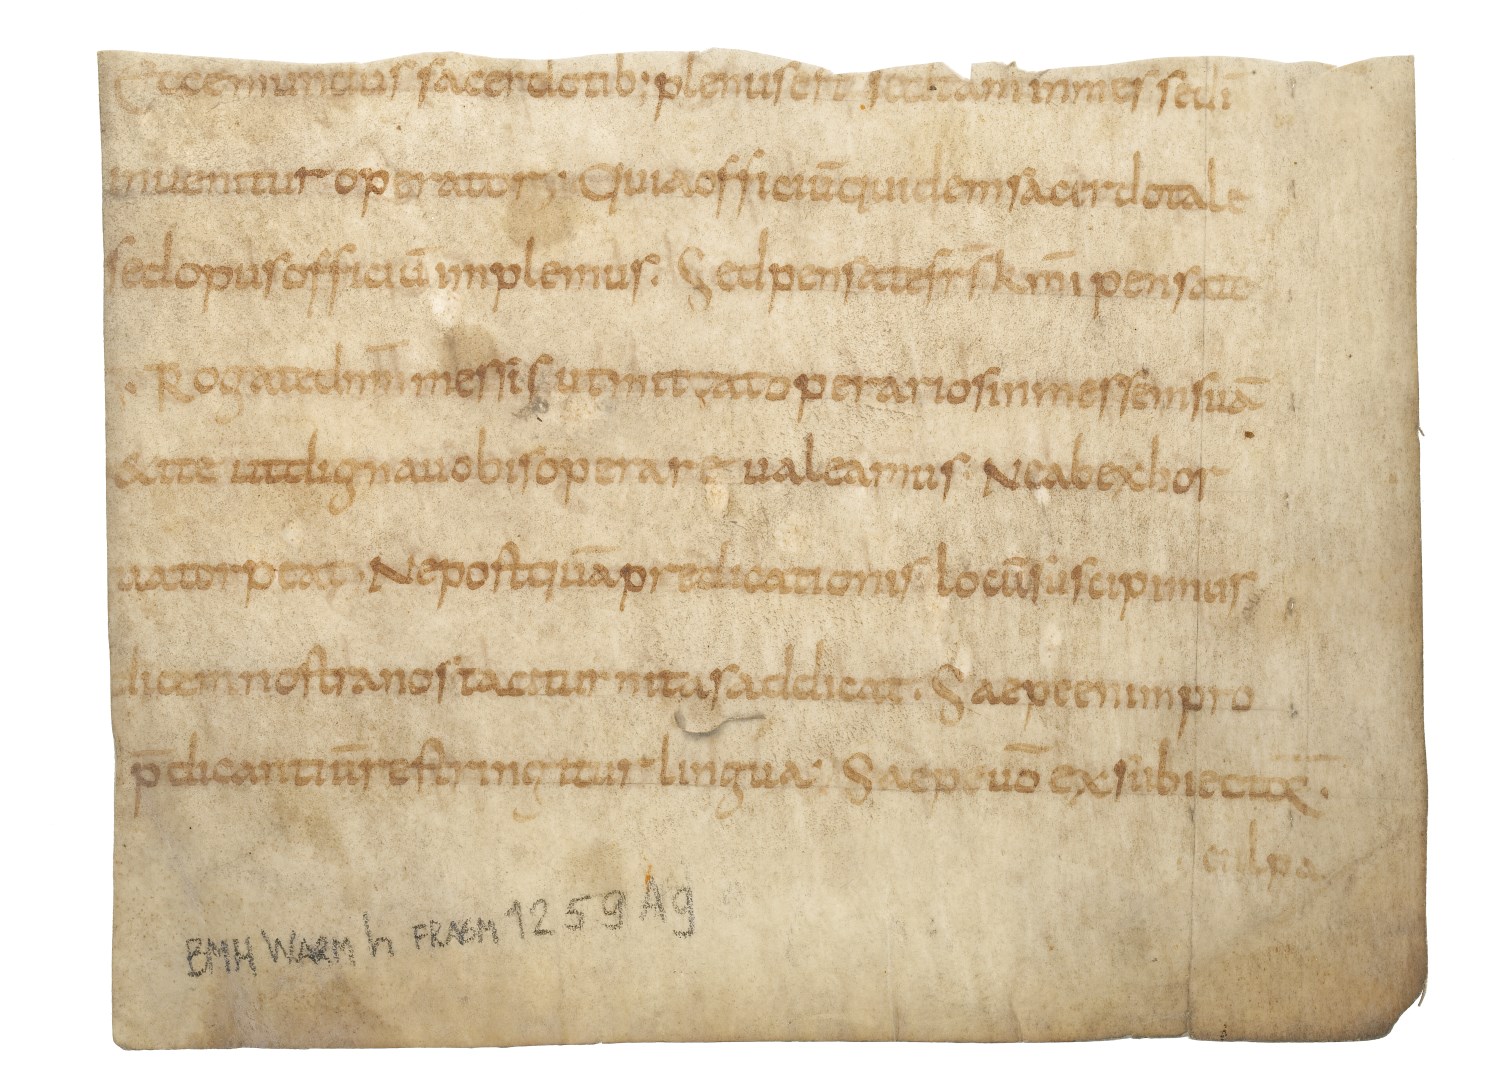 Ecce mundus sacerdotib; plenus est sed tam in messe di
inuenitur operator; Quia officiū quidem sacerdotale
sed opus officiū implemus. Sed pensate frs̄ kmi pensate
. Rogate dnm̄ messis ut mittat operarios in messem suā
&ite ut digna uobis operare ualeamus Ne ab exhor
ua torpeat, Ne postquā predicationis locū suscipimus
dicem nostra nos taciturnitas addicat. Saepe enim pro
p̄dicantiū restringitur lingua. Saepe uō ex subiectoꝝ.
culpa
BMH WARM h FRAGM 1259 Ag